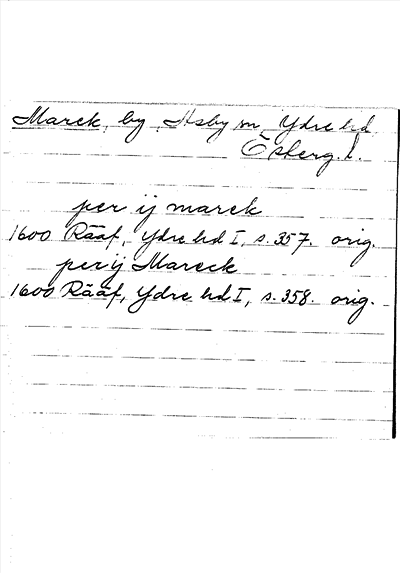 Marek, by, Asby sn, Ydre hd
Österg. l.
per ij marek
1600 Rääf, Ydre hd I, s. 357. orig.
per ij Mareck
1600 Rääf, Ydre hd I, s. 358. orig.